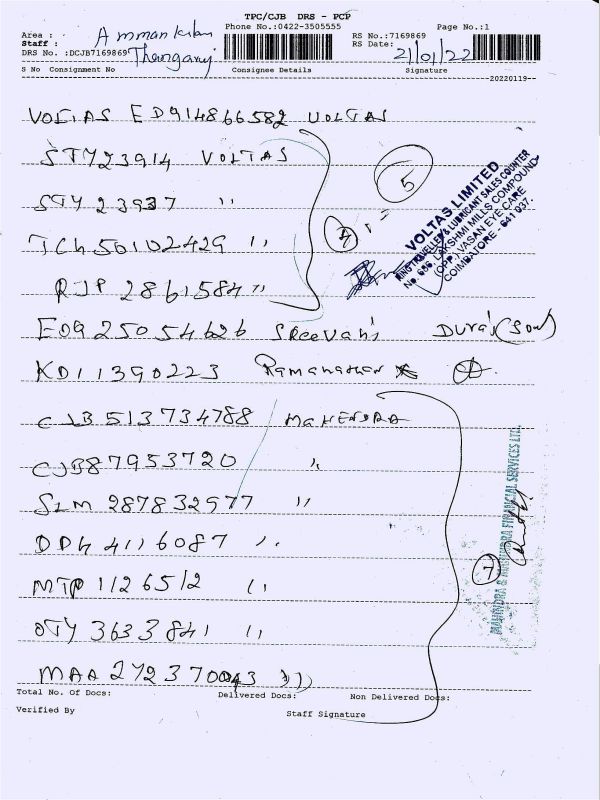 TPC/CJB DRS - PCP
Phone No.:0422-3505555
Page No.:1
Area :
Staff : Thangaraj
DRS No. :DCJB7169869
RS No.:7169869
RS Date: 21/01/22
S No Consignment No Consignee Details Signature
20220119
VOLTAS ED914866582 VOLTAS
STY23914 VOLTAS
STY 23937 "
TCh 50102429 "
RJP 2861584 "
5
VOLTAS LIMITED
No. 686, LAKSHMI MILLS COMPOUND
(OPP.) VASAN EYE CARE
COIMBATORE - 641 037.
E0925054626 Sreevahi Durai (Son)
KD11390223 Ramanathan
CJB 513734788 MAHENDRA
CJB87953720 "
SLM 287832977 "
DDh 4116087 "
MTP 1126512 "
OTY 3633841 "
MAA
7
MAHINDRA & MAHINDRA FINANCIAL SERVICES LTD.
Total No. Of Docs: Delivered Docs: Non Delivered Docs:
Verified By Staff Signature